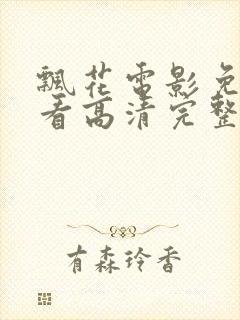 飘花电影免
看高清完整
有森玲香